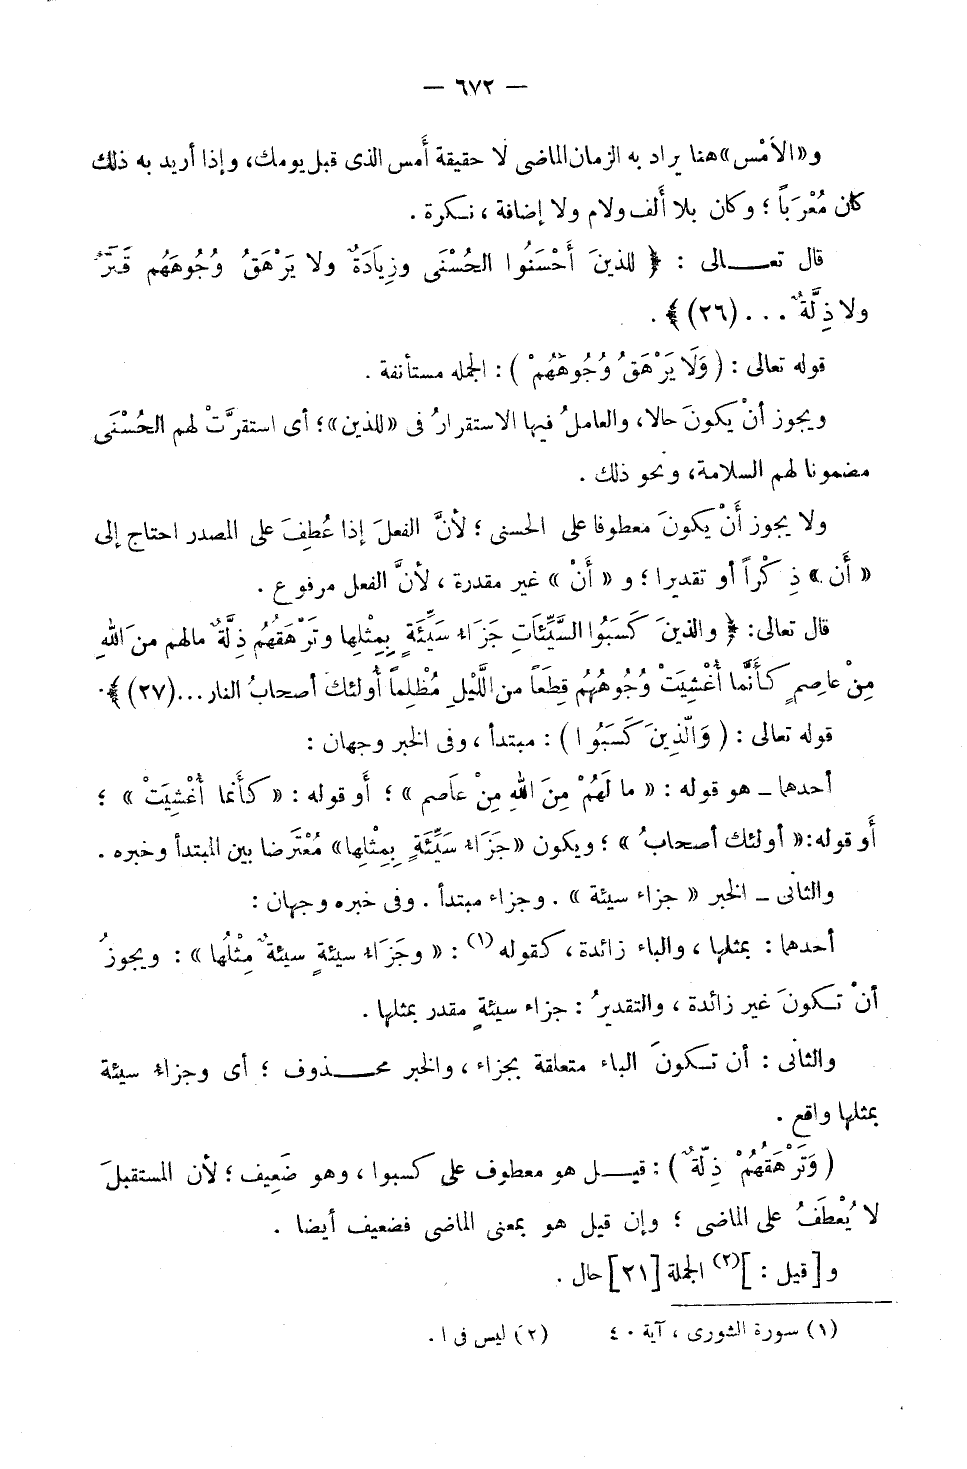 — ٦٧٢ —
و«الأَمْس» هنا يراد به الزمان الماضى لا حقيقة أَمس الذى قبل يومك، وإذا أريد به ذلك
كان مُعْرَباً ؛ وكان بلا أَلف ولام ولا إضافة ، نكرة .
قال تعالى : ﴿ للذينَ أَحْسَنُوا الحُسْنَى وزِيَادَةٌ ولا يَرْهَقُ وُجُوهَهُم قَتَرٌ
ولا ذِلَّةٌ ... (٢٦) ﴾ .
قوله تعالى : ( وَلَا يَرْهَقُ وُجُوهَهُمْ ) : الجمله مستأنفة .
ويجوز أنْ يكونَ حالا، والعاملُ فيها الاستقرارُ فى «للذين»؛ أى استقرَّتْ لهم الحُسْنَى
مضمونا لهم السلامة، ونحو ذلك .
ولا يجوز أَنْ يكونَ معطوفا على الحسنى ؛ لأنَّ الفعلَ إذا عُطِفَ على المصدر احتاج إلى
« أَن » ذِكْراً أو تقديرا ؛ و « أَنْ » غير مقدرة ، لأنَّ الفعل مرفوع .
قال تعالى: ﴿ والذينَ كَسَبُوا السَّيِّئَاتِ جَزَاءُ سَيِّئَةٍ بِمِثْلِها وتَرْهَقُهُم ذِلَّةٌ مالهم منَ اللهِ
مِنْ عاصِمٍ كَأَنَّما أُغْشِيَتْ وُجُوهُهُم قِطَعاً من اللَّيْلِ مُظْلِماً أُولئك أصحابُ النار ... (٢٧) ﴾ .
قوله تعالى : ( وَالَّذِينَ كَسَبُوا ) : مبتدأ ، وفى الخبر وجهان :
أحدها ــ هو قوله : « ما لَهُمْ مِنَ اللهِ مِنْ عاَصم » ؛ أَو قوله : « كأَنما أُغْشِيَتْ » ؛
أَو قوله: « أولئك أصحابُ » ؛ ويكون «جَزَاءُ سَيِّئَةٍ بِمِثْلِها» مُعْتَرضا بين المبتدأ وخبره .
والثانى ــ الخبر « جزاء سيئة » . وجزاء مبتدأ . وفى خبره وجهان :
أحدها : بمثلها ، والباء زائدة ، كقوله (١) : « وجَزَاءُ سيئةٍ سيئةٌ مِثْلُها » : ويجوزُ
أنْ تكونَ غير زائدة ، والتقديرُ : جزاء سيئةٍ مقدر بمثلها .
والثانى : أن تكونَ الباء متعلقة بجزاء ، والخبر محذوف ؛ أى وجزاءُ سيئة
بمثلها واقع .
( وَتَرْهَقُهُمْ ذِلّةٌ ) : قيل هو معطوف على كسبوا ، وهو ضَعِيف ؛ لأن المستقبلَ
لا يُعْطَفُ على الماضى ؛ وإن قيل هو بمعنى الماضى فضعيف أيضا .
و [ قيل : ] (٢) الجملة [٢١] حال .
(١) سورة الشورى ، آية ٤٠ (٢) ليس فى ا .